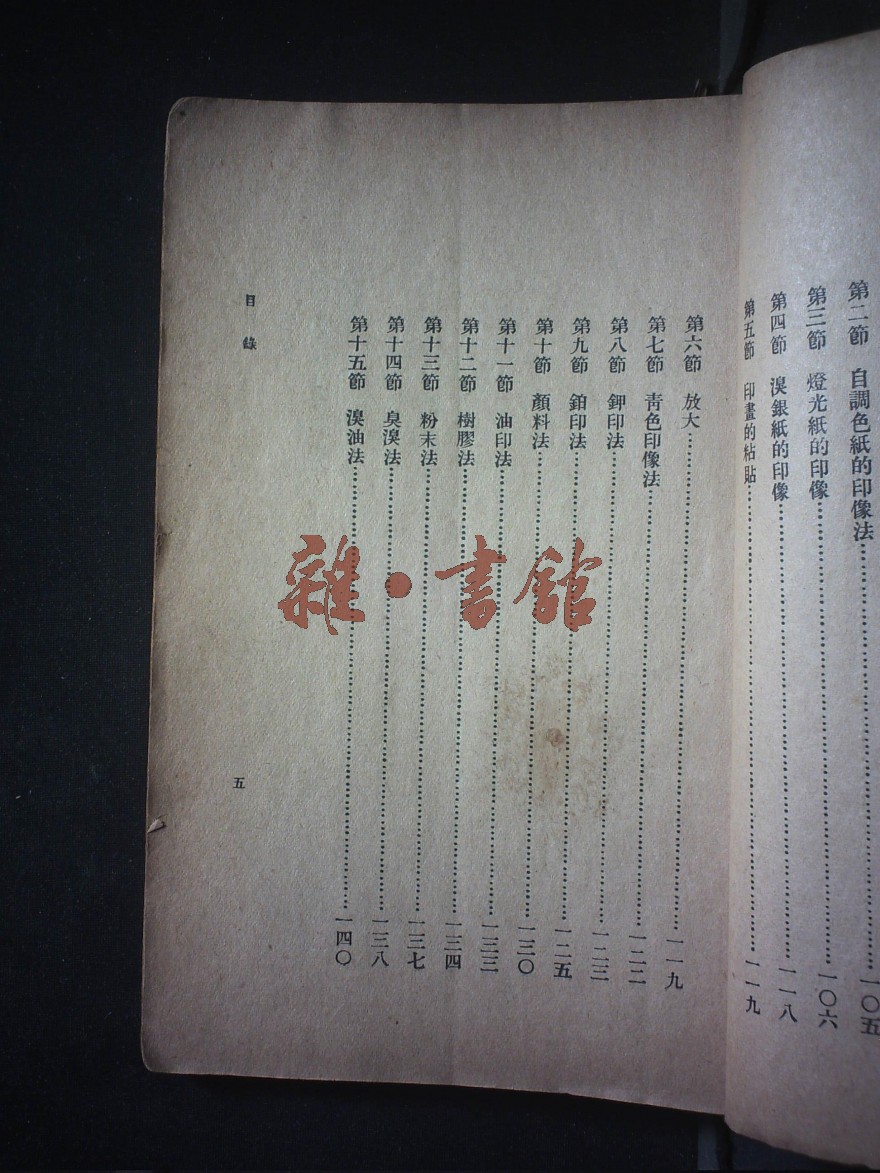 第二節　自調色紙的印像法……一〇五
第三節　燈光紙的印像……一〇六
第四節　溴銀紙的印像……一一八
第五節　印畫的粘貼……一一九
第六節　放大……一一九
第七節　靑色印像法……一二二
第八節　鉀印法……一二三
第九節　鉑印法……一二五
第十節　顏料法……一三〇
第十一節　油印法……一三三
第十二節　樹膠法……一三四
第十三節　粉末法……一三七
第十四節　臭溴法……一三八
第十五節　溴油法……一四〇
目錄
五
雜·書館